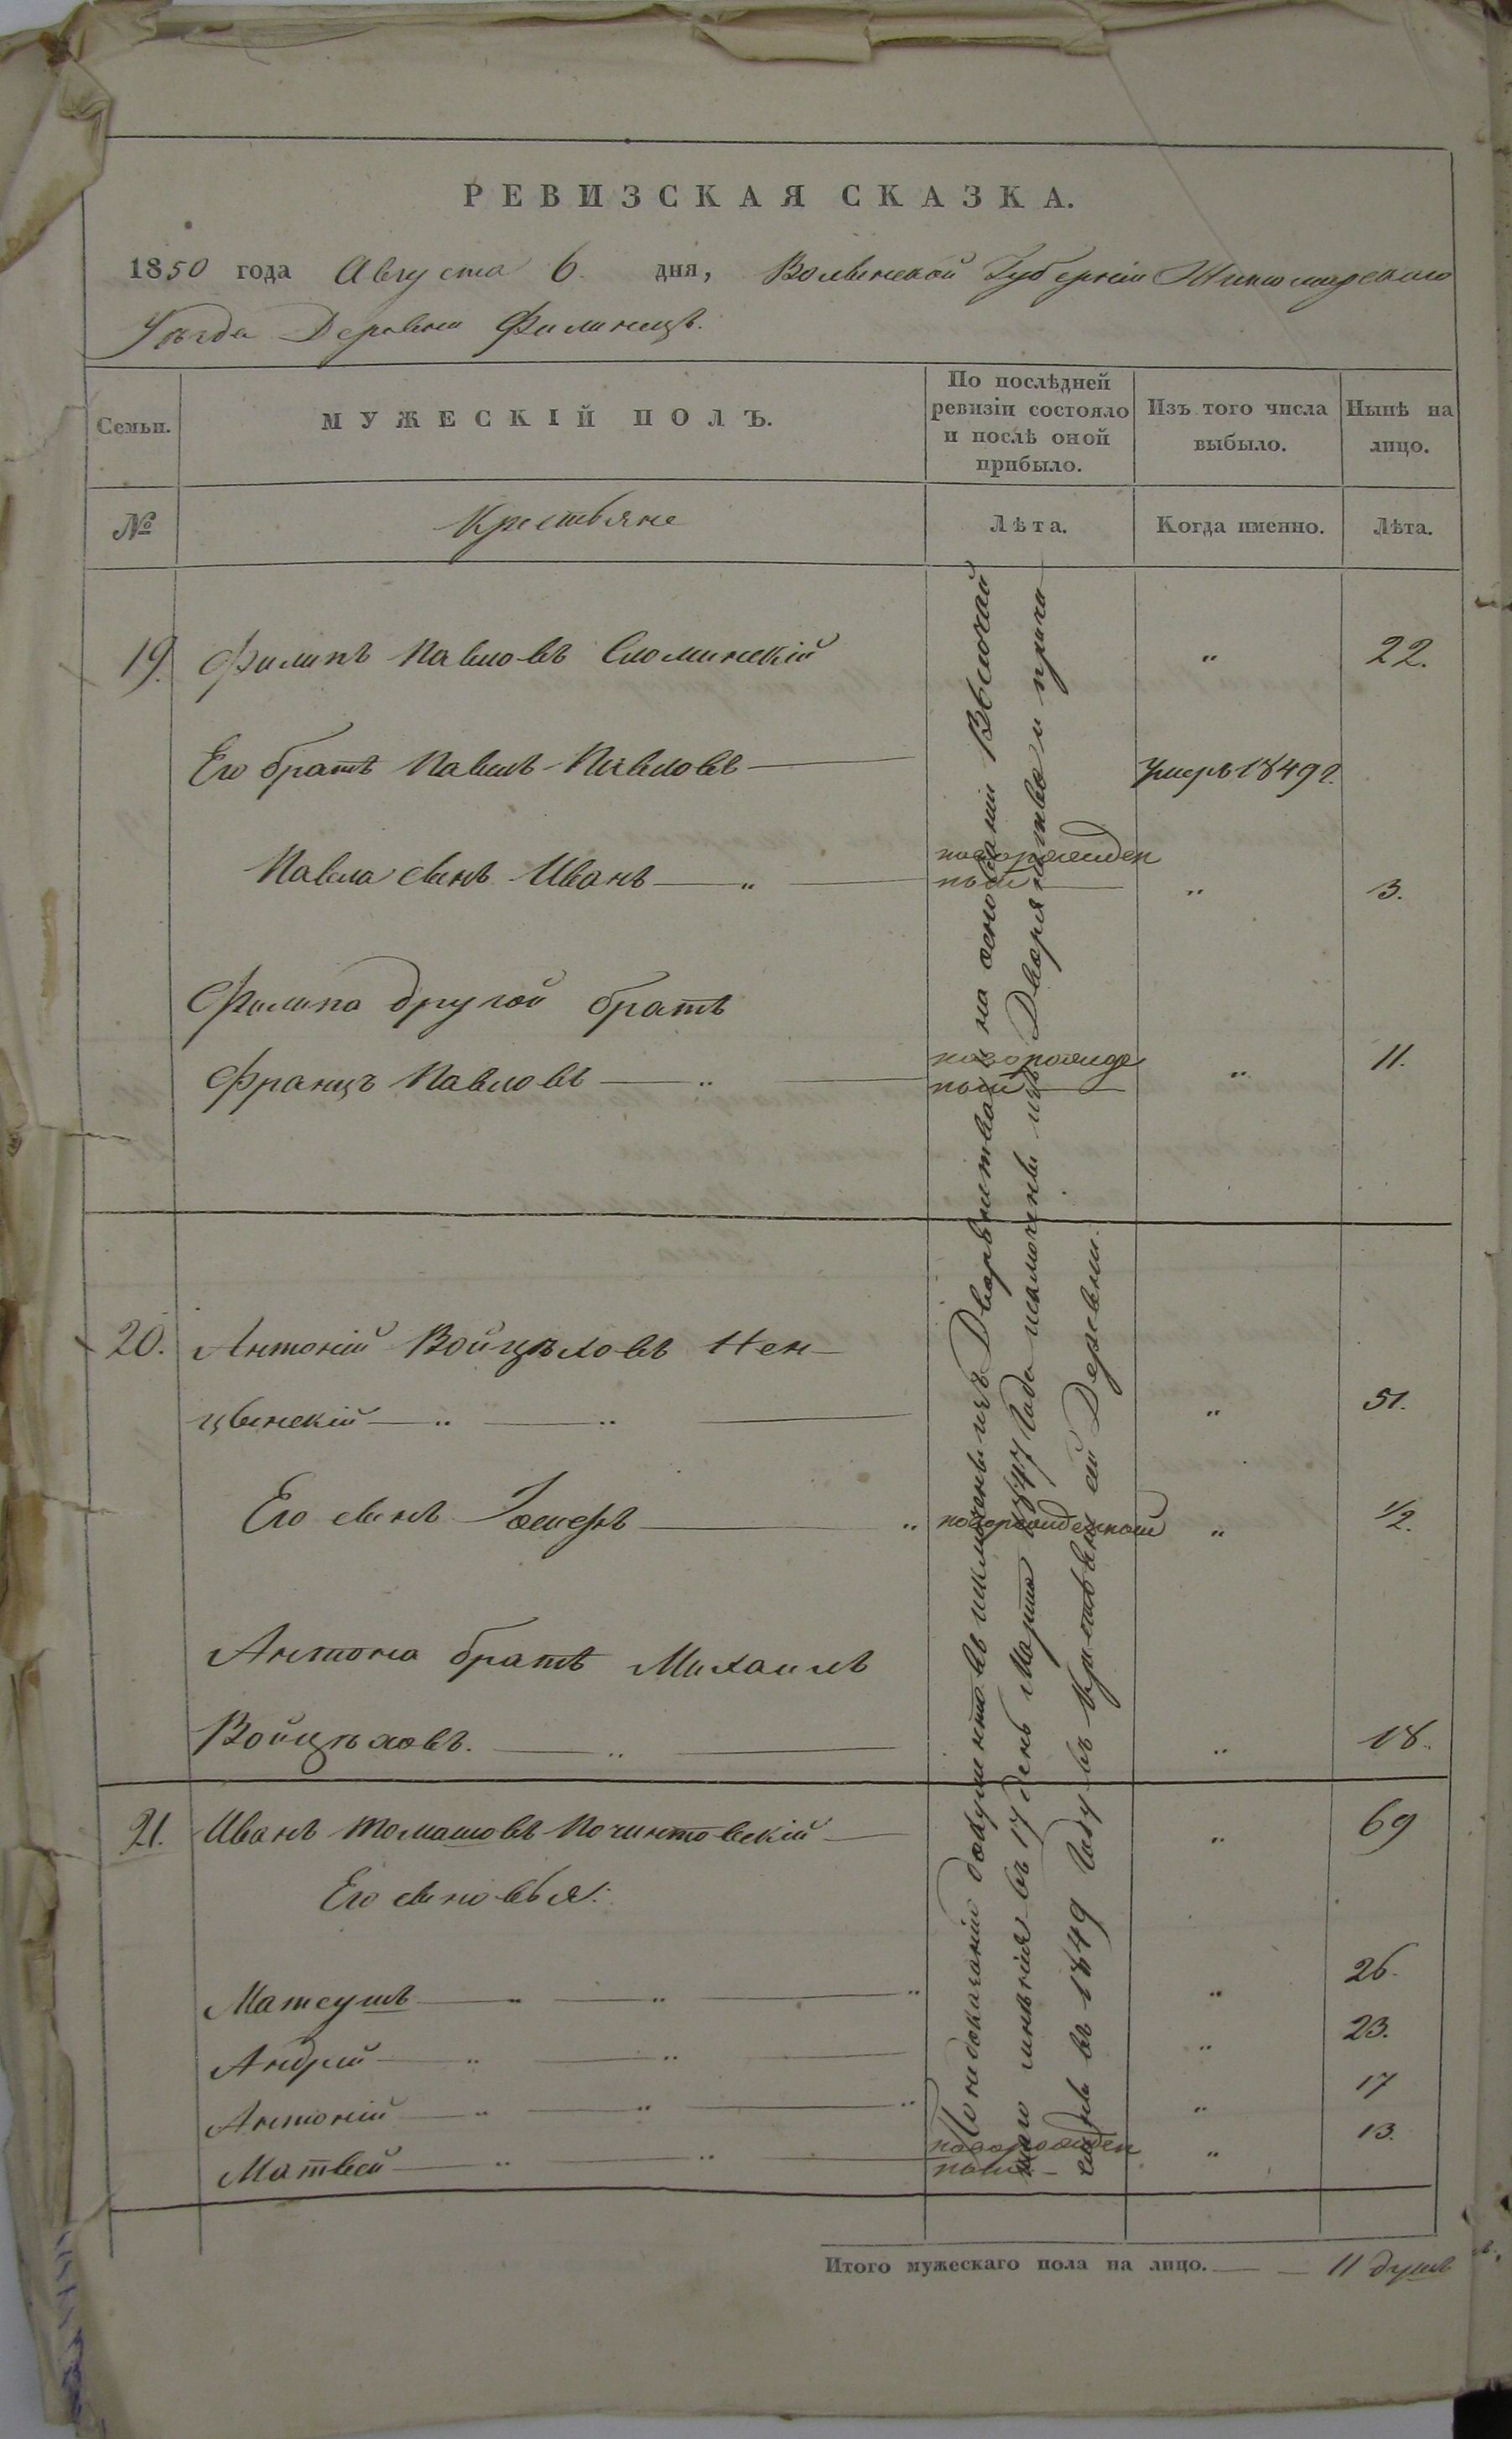 РЕВИЗСКАЯ СКАЗКА.
1850 года Августа 6 дня, Волынской Губерніи Житомирскаго
Уѣзда Деревни Филинецъ.
Семьи.
МУЖЕСКІЙ ПОЛЪ.
По послѣдней
ревизіи состояло
и послѣ оной
прибыло.
Изъ того числа
выбыло.
Нынѣ на
лицо.
№
Крестьяне
Лѣта.
Когда именно.
Лѣта.
19. Филипъ Павловъ Сломинскій " 22.
Его братъ Павелъ Павловъ Умеръ 1849 г.
Павла сынъ Иванъ " новорожден
ный " 3.
Филипа другой братъ
Францъ Павловъ " новорожде
ный " 11.
20. Антоній Войцѣховъ Нен-
цвинскій " " " 51.
Его сынъ Іосифъ " новорожденный " 1/2.
Антона братъ Михаилъ
Войцѣховъ. " " 18.
21. Иванъ Томашовъ Починтовскій " 69
Его сыновья:
Матеушъ " " " " 26.
Андрей " " " 23.
Антоній " " " " 17
Матвей " " новорожден
ный " 13.
По недоказаніи документовъ исключены изъ Дворянства на основаніи Высочай
шаго мнѣнія въ 17 день Марта 1847 Года исключены изъ Дворянства и причи
слены въ 1849 Году въ Крестьяне сей Деревни.
Итого мужескаго пола на лицо. 11 душъ